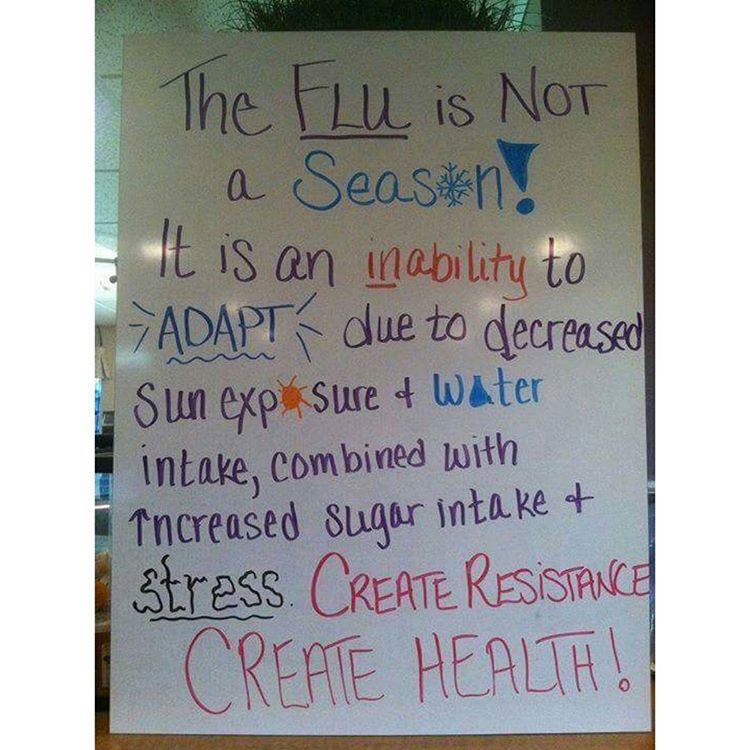 The FLU is NOT
a Season!
It is an inability to
ADAPT due to decreased
Sun exposure + Water
intake, combined with
↑ncreased sugar intake +
stress. CREATE RESISTANCE
CREATE HEALTH!